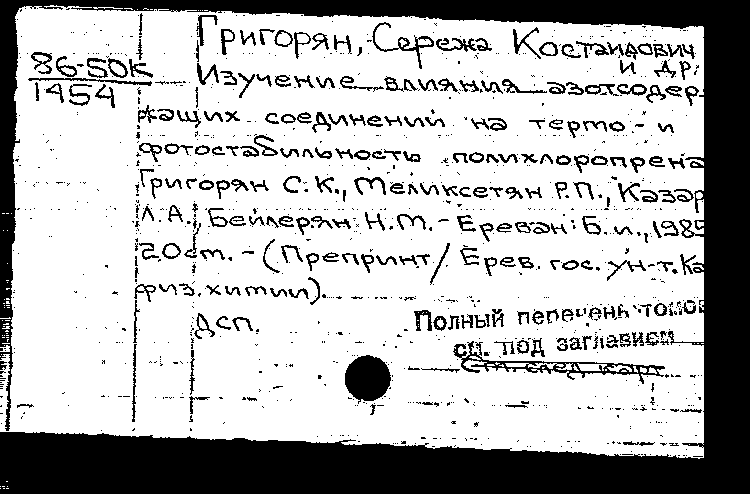 86-50к
1454
Григорян, Сережа Костандович
и др.
Изучение влияния азотсодер-
жащих соединений на термо- и
фотостабильность полихлоропрена
Григорян С.К., Меликсетян Р.П., Казар
Л.А., Бейлерян Н.М. - Ереван: Б.и., 1985
20 ст. - (Препринт/ Ерев. гос. ун-т. Ка
физ. химии).
ДСП.
Полный перечень томов
см. под заглавием
См. след. карт